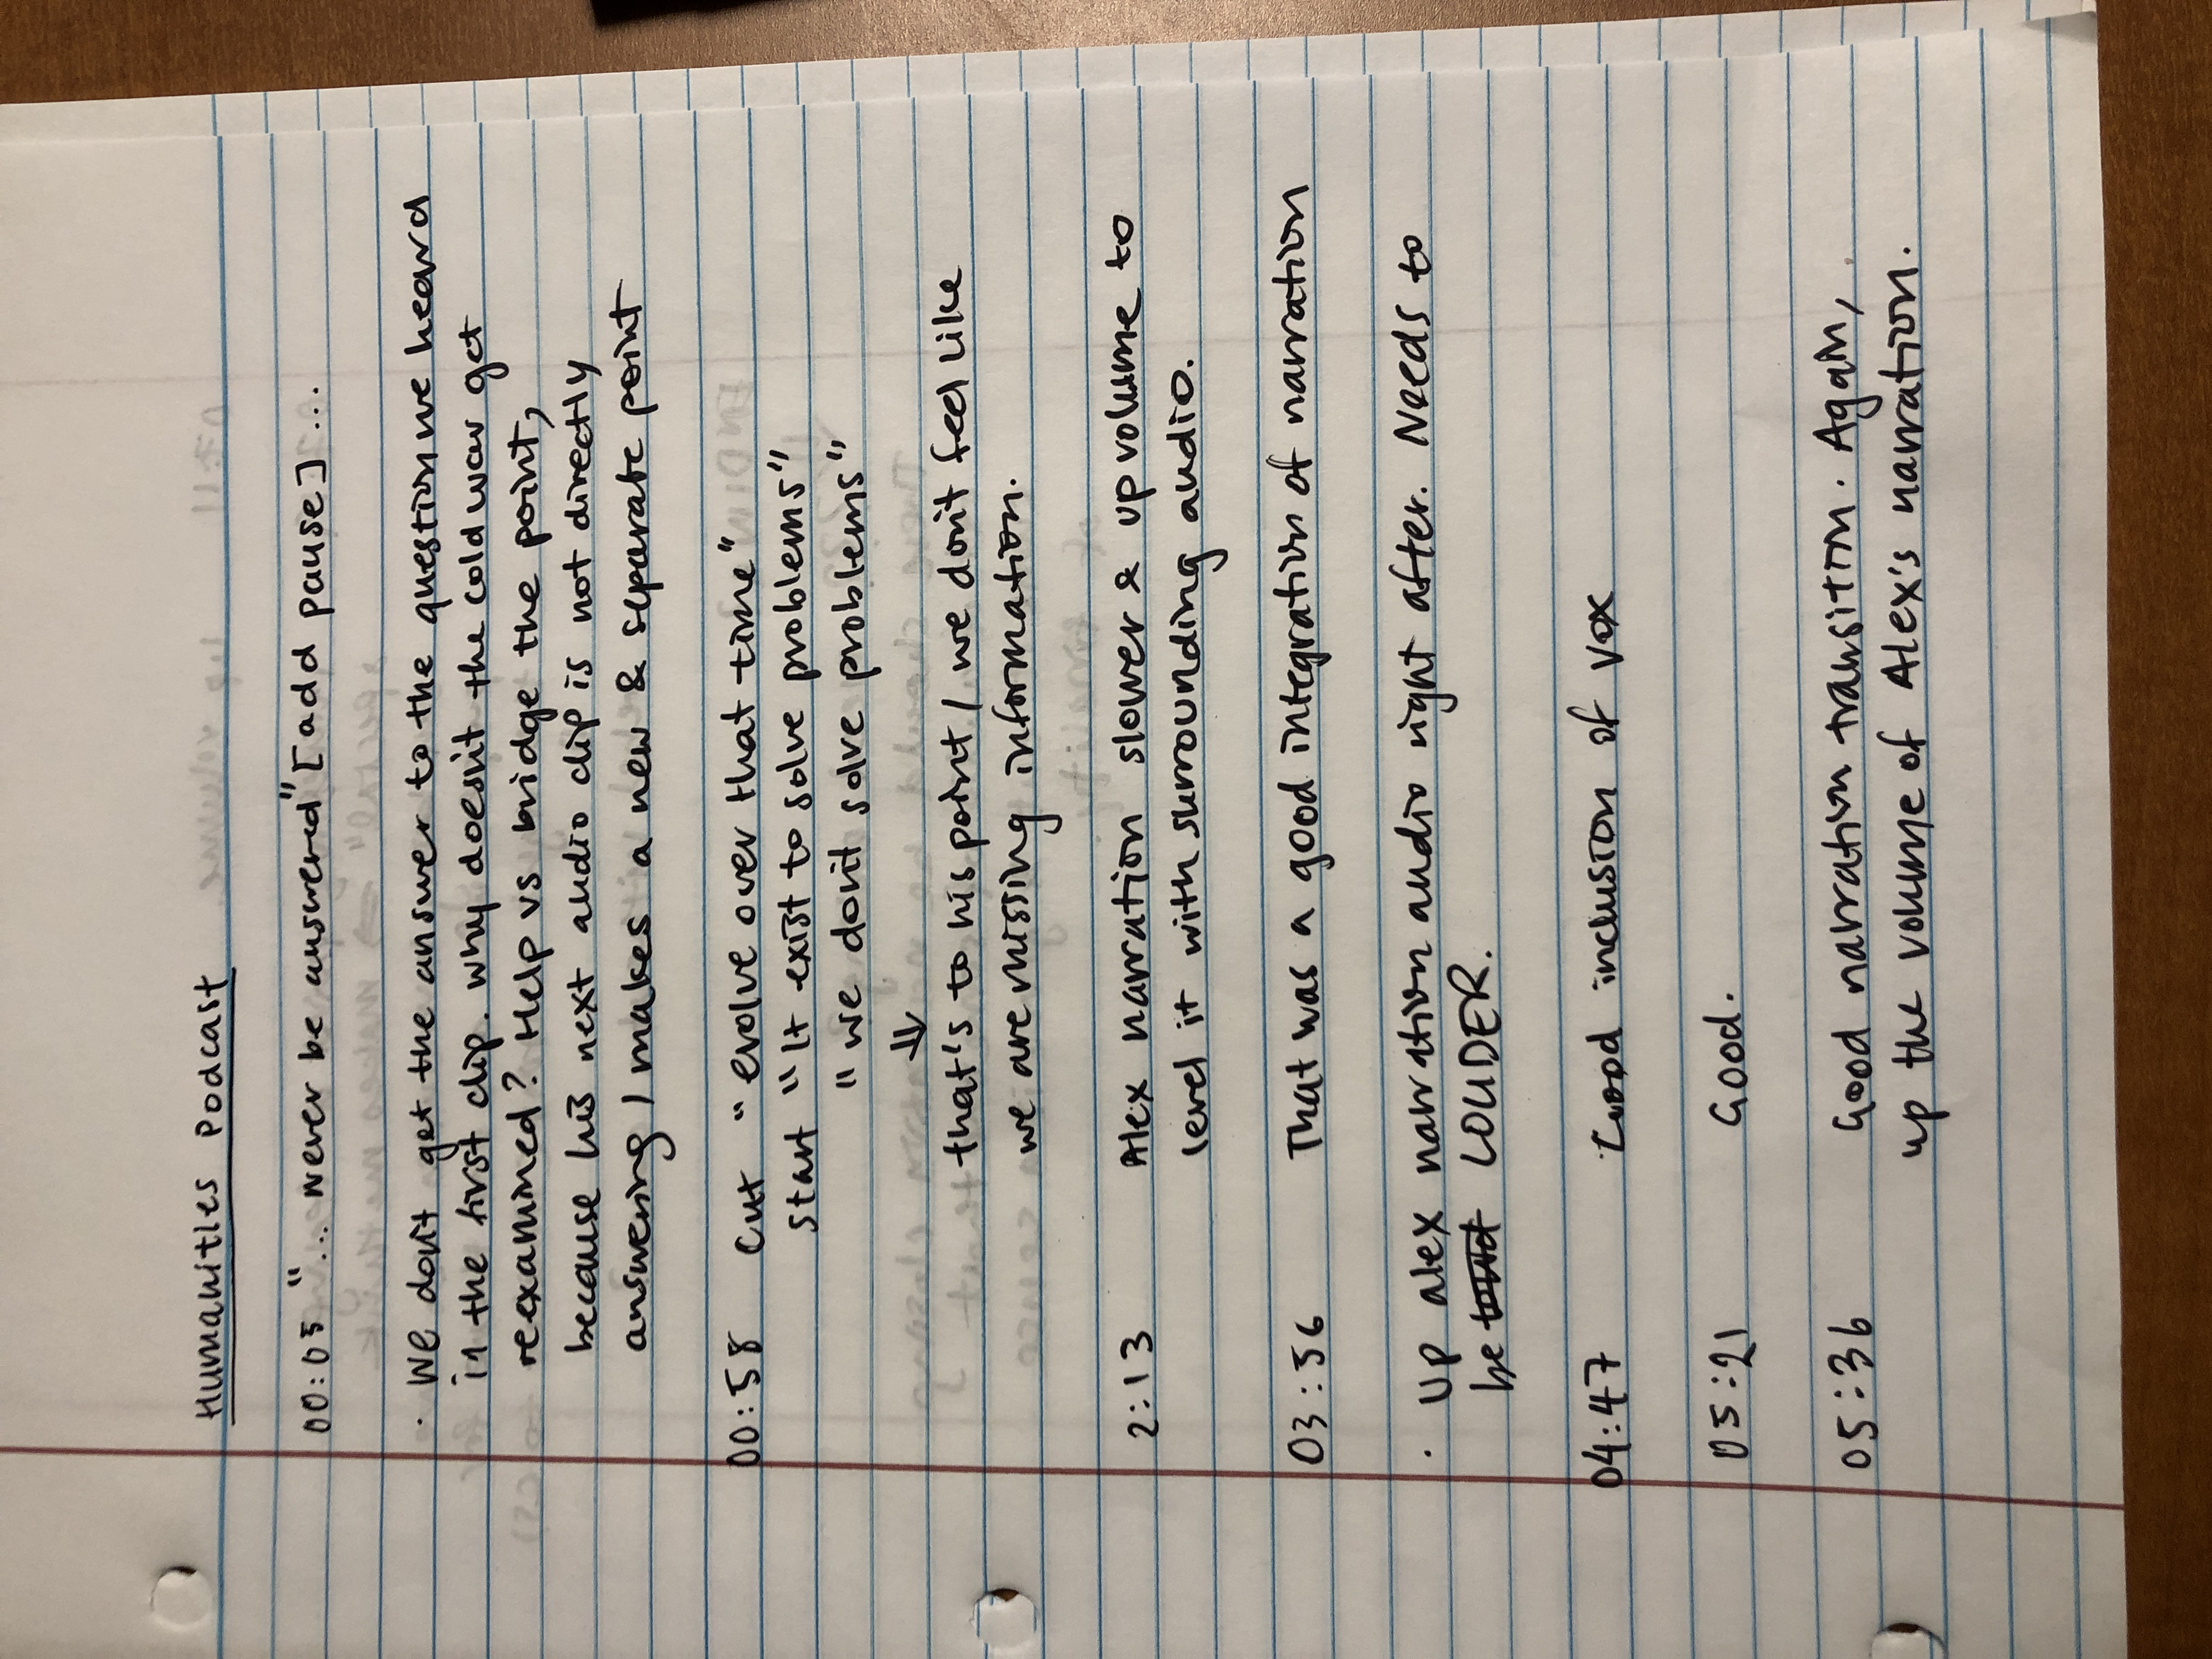 Humanities Podcast
00:05 "... never be answered" [add pause] ...
· We don't get the answer to the question we heard
in the first clip. Why doesn't the cold war get
reexamined? Help us bridge the point,
because his next audio clip is not directly
answering / makes a new & separate point
00:58 Cut "evolve over that time"
start "It exist to solve problems"
"we don't solve problems"
⇓
that's to his point / we don't feel like
we are missing information.
2:13 Alex narration slower & up volume to
level it with surrounding audio.
03:56 That was a good integration of narration
· Up alex narration audio right after. Needs to
be LOUDER.
04:47 Good inclusion of vox
05:21 Good.
05:36 Good narration transition. Again,
up the volume of Alex's narration.